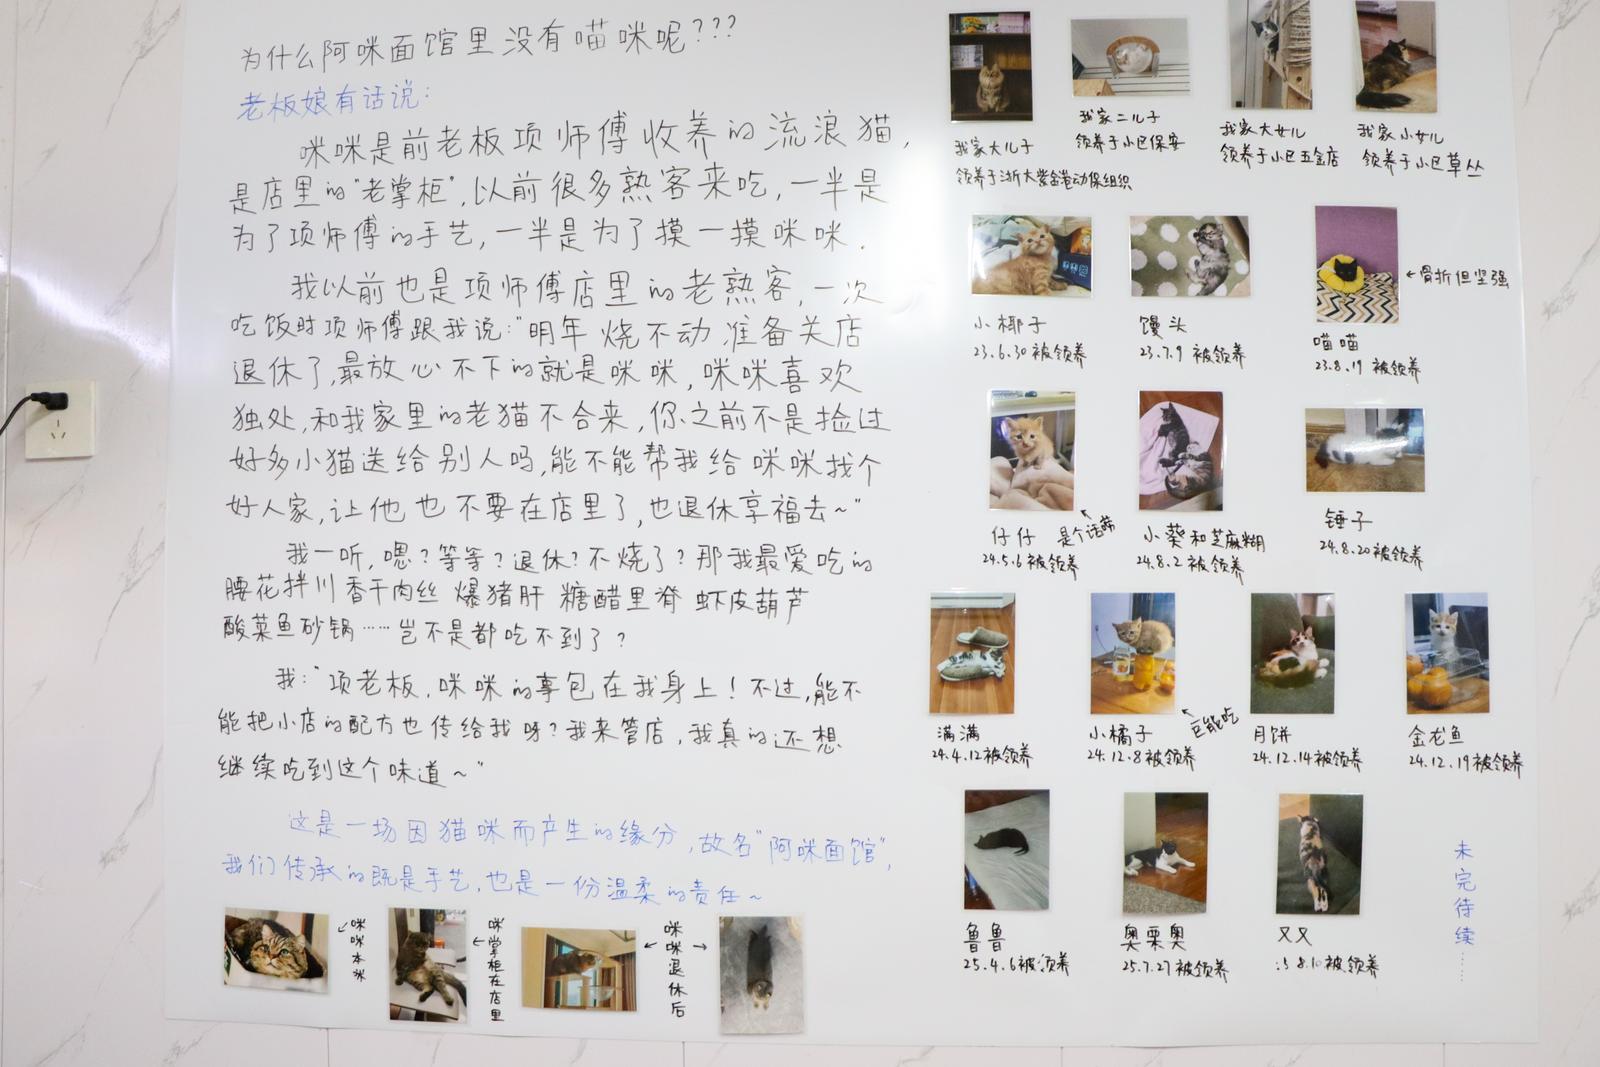 为什么阿咪面馆里没有喵咪呢???
老板娘有话说:
咪咪是前老板项师傅收养的流浪猫,
是店里的"老掌柜",以前很多熟客来吃,一半是
为了项师傅的手艺,一半是为了摸一摸咪咪.
我以前也是项师傅店里的老熟客,一次
吃饭时项师傅跟我说:"明年烧不动准备关店
退休了,最放心不下的就是咪咪,咪咪喜欢
独处,和我家里的老猫不合来,你之前不是捡过
好多小猫送给别人吗,能不能帮我给咪咪找个
好人家,让他也不要在店里了,也退休享福去~"
我一听,嗯?等等?退休?不烧了?那我最爱吃的
腰花拌川 香干肉丝 爆猪肝 糖醋里脊 虾皮葫芦
酸菜鱼砂锅……岂不是都吃不到了?
我:"项老板,咪咪的事包在我身上!不过,能不
能把小店的配方也传给我呀?我来管店,我真的还想
继续吃到这个味道~"
这是一场因猫咪而产生的缘分,故名"阿咪面馆",
我们传承的既是手艺,也是一份温柔的责任~
咪咪本咪
咪掌柜在店里
咪咪退休后
我家大儿子
领养于浙大紫金港动保组织
我家二儿子
领养于小区保安
我家大女儿
领养于小区五金店
我家小女儿
领养于小区草丛
小椰子
23.6.30 被领养
馒头
23.7.9 被领养
喵喵
23.8.19 被领养
←骨折但坚强
仔仔
24.5.6被领养
是个话痨
小葵和芝麻糊
24.8.2 被领养
锤子
24.8.20被领养
满满
24.4.12被领养
小橘子
24.12.8被领养
巨能吃
月饼
24.12.14被领养
金龙鱼
24.12.19被领养
鲁鲁
25.4.6被领养
奥栗奥
25.7.27被领养
又又
8.10被领养
未完待续……